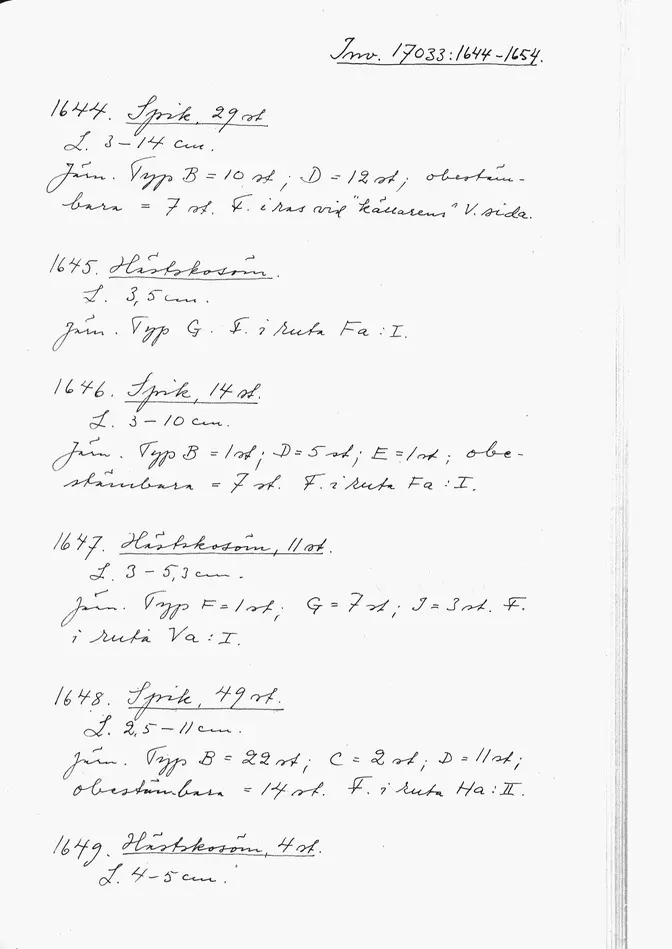 Inv. 17033:1644-1654.
1644. Spik, 29 st
L. 3-14 cm.
Järn. Typ B = 10 st; D = 12 st; obestäm-
bara = 7 st. F. i ras vid "källarens" V. sida.
1645. Hästskosöm.
L. 3,5 cm.
Järn. Typ G. F. i ruta Fa:I.
1646. Spik, 14 st.
L. 3-10 cm.
Järn. Typ B = 1 st; D = 5 st; E = 1 st; obe-
stämbara = 7 st. F. i ruta Fa:I.
1647. Hästskosöm, 11 st.
L. 3-5,3 cm.
Järn. Typ F = 1 st; G = 7 st; I = 3 st. F.
i ruta Va:I.
1648. Spik, 49 st.
L. 2,5-11 cm.
Järn. Typ B = 22 st; C = 2 st; D = 11 st;
obestämbara = 14 st. F. i ruta Ha:II.
1649. Hästskosöm, 4 st.
L. 4-5 cm.